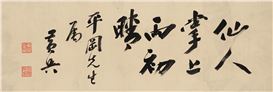 仙人
掌上
雨初
晴
平岡先生
属
黄興